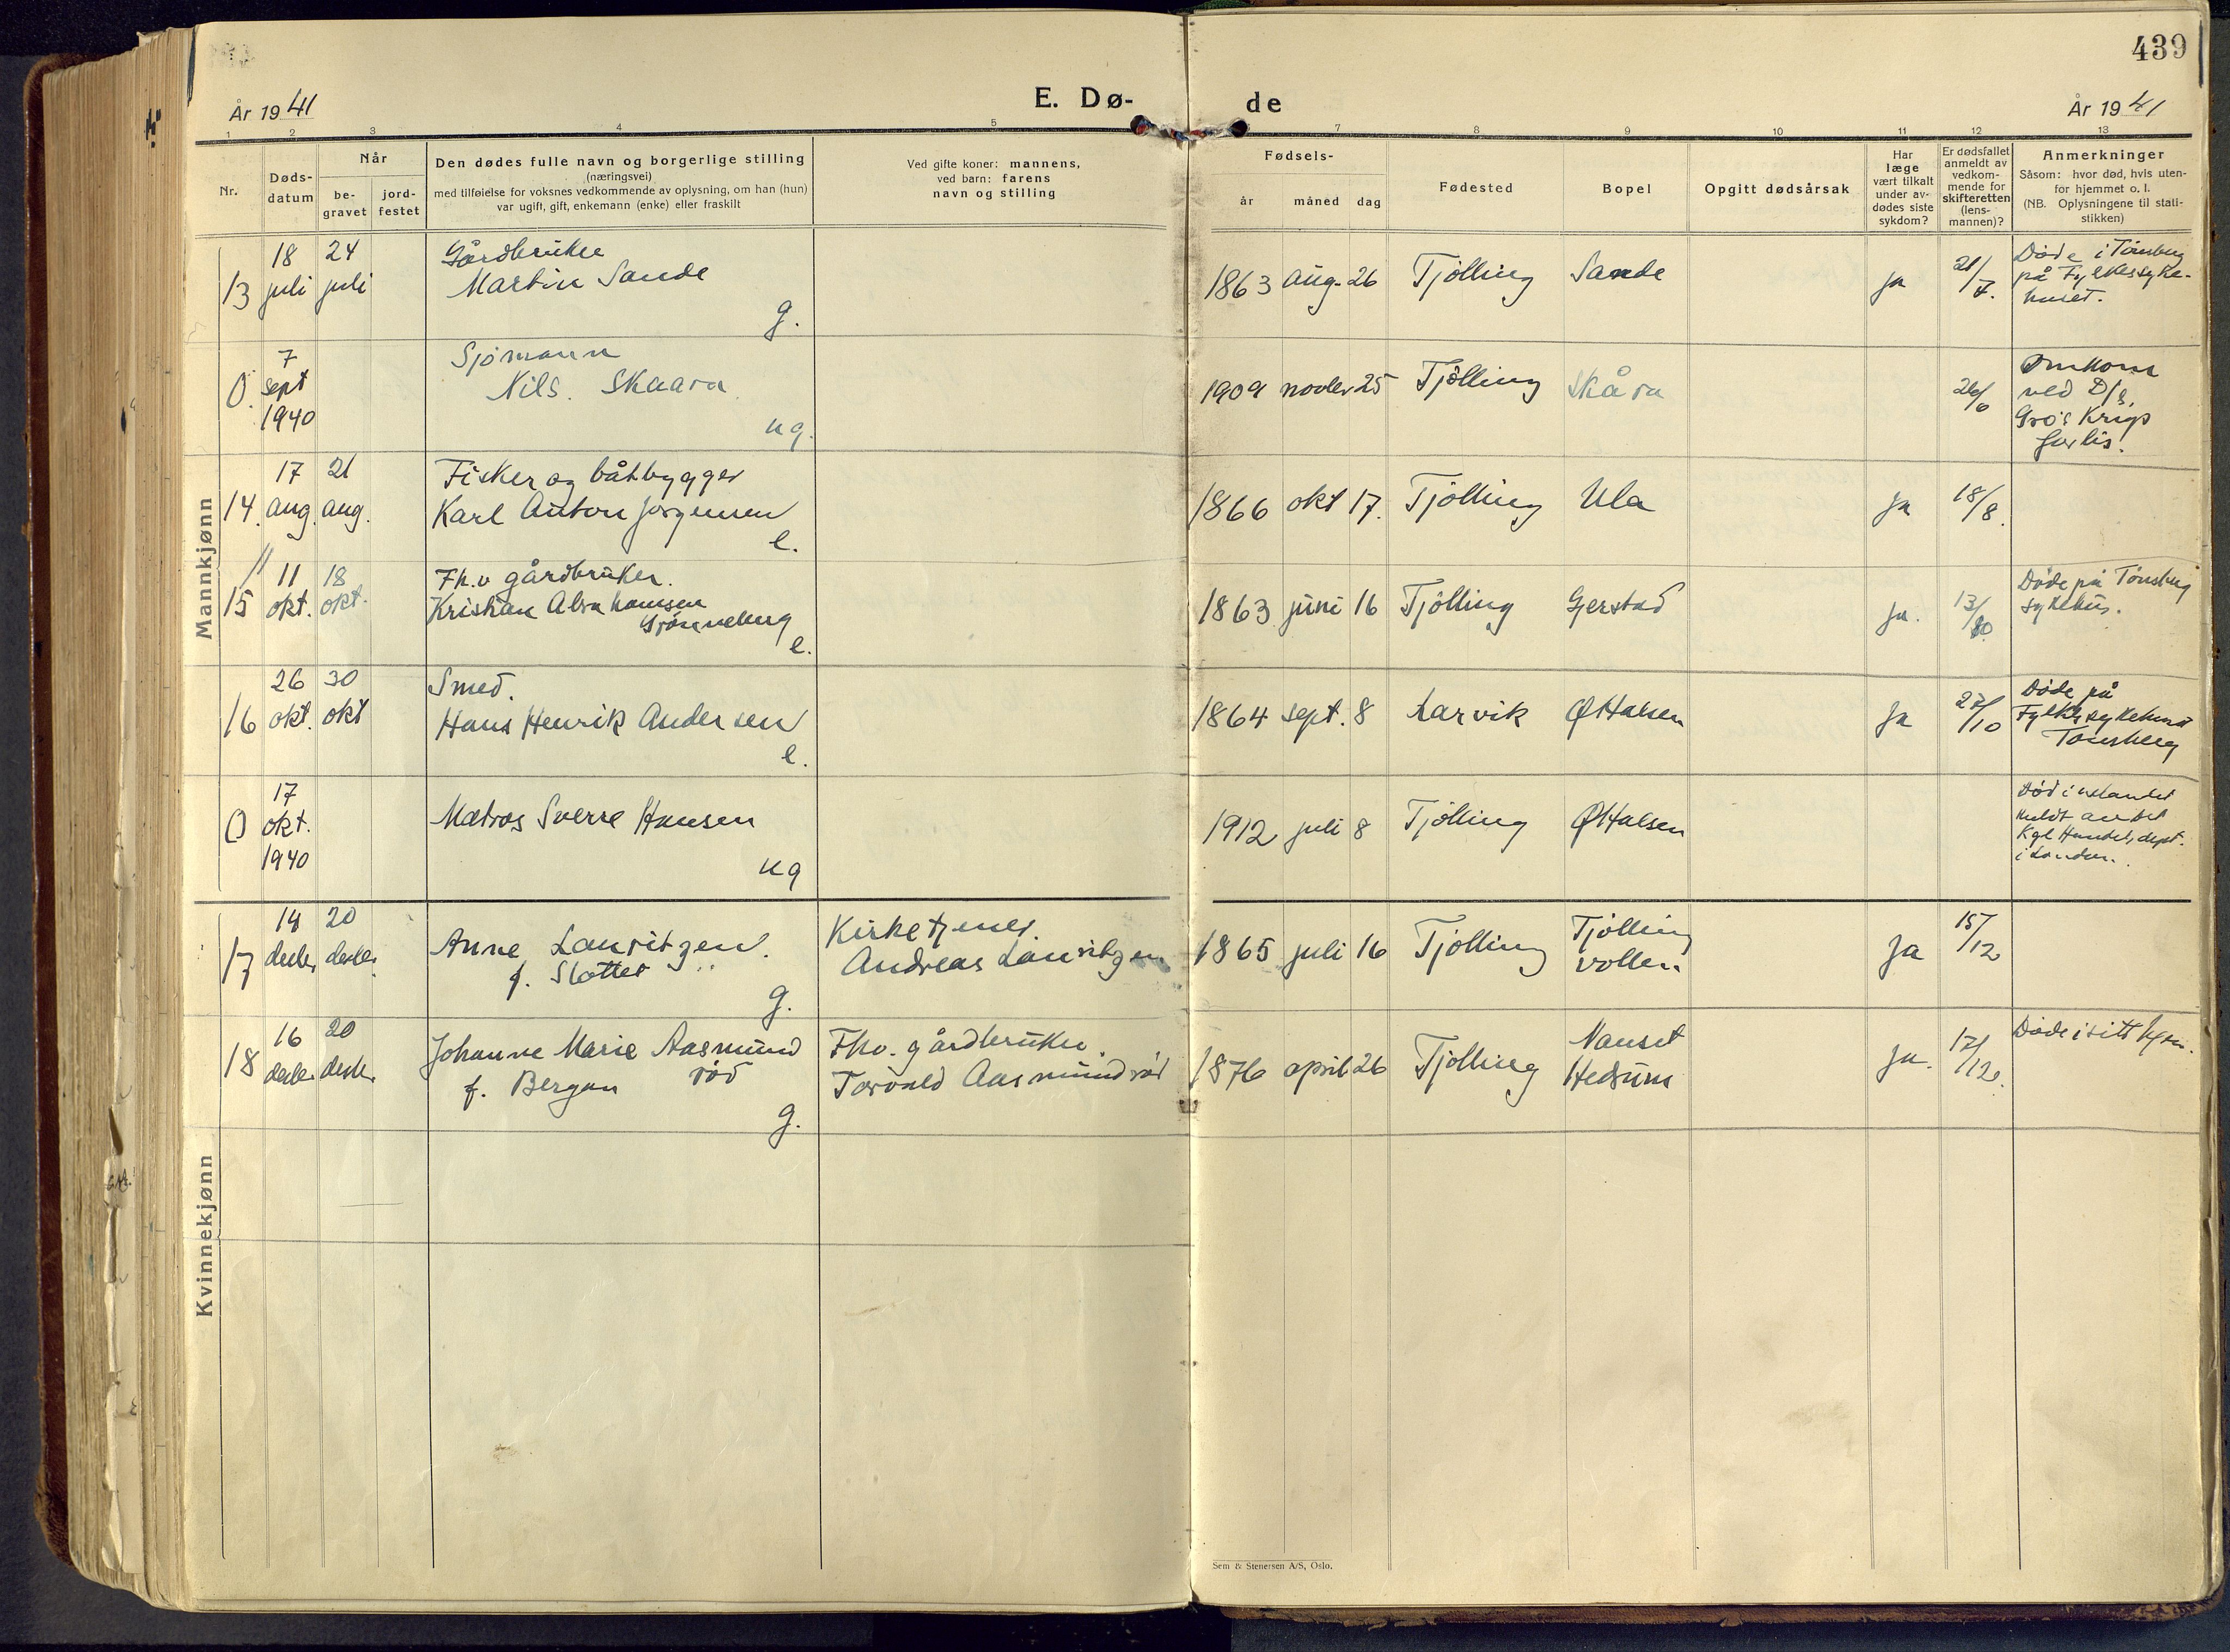 439
År 1941
E. Dø-
de
År 1941
1 2 3 4 5 7 8 9 10 11 12 13
Nr.
Døds-
datum
Når
be-
gravet
jord-
festet
Den dødes fulle navn og borgerlige stilling
(næringsvei)
med tilføielse for voksnes vedkommende av oplysning, om han (hun)
var ugift, gift, enkemann (enke) eller fraskilt
Ved gifte koner: mannens,
ved barn: farens
navn og stilling
Fødsels-
år måned dag
Fødested
Bopel
Opgitt dødsårsak
Har
læge
vært tilkalt
under av-
dødes siste
sykdom?
Er dødsfallet
anmeldt av
vedkom-
mende for
skifteretten
(lens-
mannen)?
Anmerkninger
Såsom: hvor død, hvis uten-
for hjemmet o. l.
(NB. Oplysningene til stati-
stikken)
Mannkjønn
13
18
juli
24
juli
Gårdbruker
Martin Sande
g.
1863 aug. 26
Tjølling
Sande
ja
21/7.
Døde i Tønsberg
på Fylkessyke-
huset.
0.
7
sept
1940
Sjømann
Nils. Skaara
ug.
1909 novbr 25
Tjølling
Skåra
26/6
Omkom
ved D/s.
Gro's Krigs
forlis.
14.
17
aug.
21
aug.
Fisker og båtbygger
Karl Anton Jørgensen
e.
1866 okt 17.
Tjølling
Ula
ja
18/8.
15
11
okt.
18
okt.
Fh.v gårdbruker.
Kristian Abrahamsen
e.
1863 juni 16
Tjølling
Gjerstad
ja.
13/10
Døde på Tønsberg
sykehus.
16
26
okt.
30
okt
Smed.
Hans Henrik Andersen
e.
1864 sept. 8
Larvik
Ø Halsen
ja
27/10
Døde på
Fylkessykehuset
Tønsberg
0
17
okt.
1940
Matros Sverre Hansen
ug
1912 juli 8
Tjølling
Ø Halsen
Død i utlandet
meldt av det
Kgl Handelsdept.
i London.
Kvinnekjønn
17
14
desbr
20
desbr.
Anne Lauritzen.
f. Slottet
g.
Kirketjener.
Andreas Lauritzen
1865 juli 16
Tjølling
Tjølling
vollen
ja
15/12
18
16
desbr.
20
desbr.
Johanne Marie Aasmund
rød
f. Bergan
g.
Fhv. gårdbruker
Torvald Aasmundrød
1876 april 26
Tjølling
Nanset
Hedrum
ja.
17/12.
Døde i sitt hjem.
Sem & Stenersen A/S, Oslo.